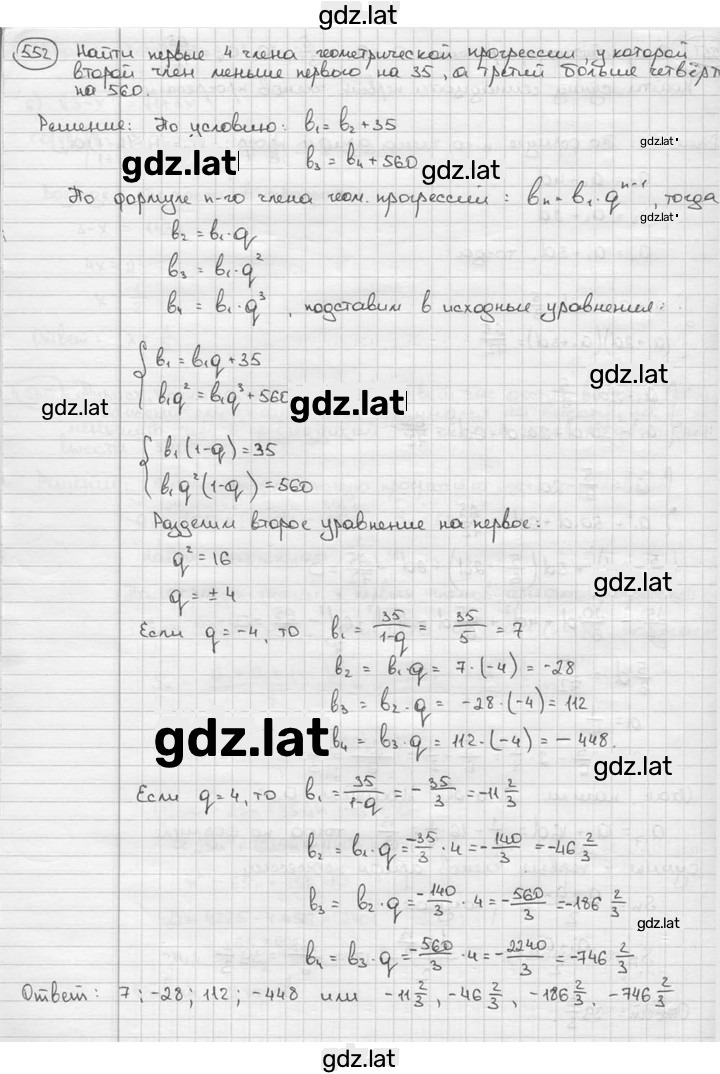 gdz.lat
552 Найти первые 4 члена геометрической прогрессии, у которой
второй член меньше первого на 35, а третий больше четвёрт
на 560.
Решение: По условию: b₁ = b₂ + 35
gdz.lat
b₃ = b₄ + 560
gdz.lat gdz.lat
По формуле n-го члена геом. прогрессий: bₙ = b₁·qⁿ⁻¹, тогда
gdz.lat
b₂ = b₁·q
b₃ = b₁·q²
b₄ = b₁·q³, подставим в исходные уравнения:
{ b₁ = b₁q + 35
gdz.lat
b₁q² = b₁q³ + 560
gdz.lat gdz.lat
{ b₁(1-q) = 35
b₁q²(1-q) = 560
Разделим второе уравнение на первое:
q² = 16
gdz.lat
q = ± 4
Если q = -4, то b₁ = 35/(1-q) = 35/5 = 7
b₂ = b₁·q = 7·(-4) = -28
b₃ = b₂·q = -28·(-4) = 112
gdz.lat
b₄ = b₃·q = 112·(-4) = -448.
gdz.lat
Если q = 4, то b₁ = 35/(1-q) = -35/3 = -11 2/3
b₂ = b₁·q = -35/3 · 4 = -140/3 = -46 2/3
b₃ = b₂·q = -140/3 · 4 = -560/3 = -186 2/3
gdz.lat
b₄ = b₃·q = -560/3 · 4 = -2240/3 = -746 2/3
Ответ: 7; -28; 112; -448 или -11 2/3, -46 2/3, -186 2/3, -746 2/3
gdz.lat